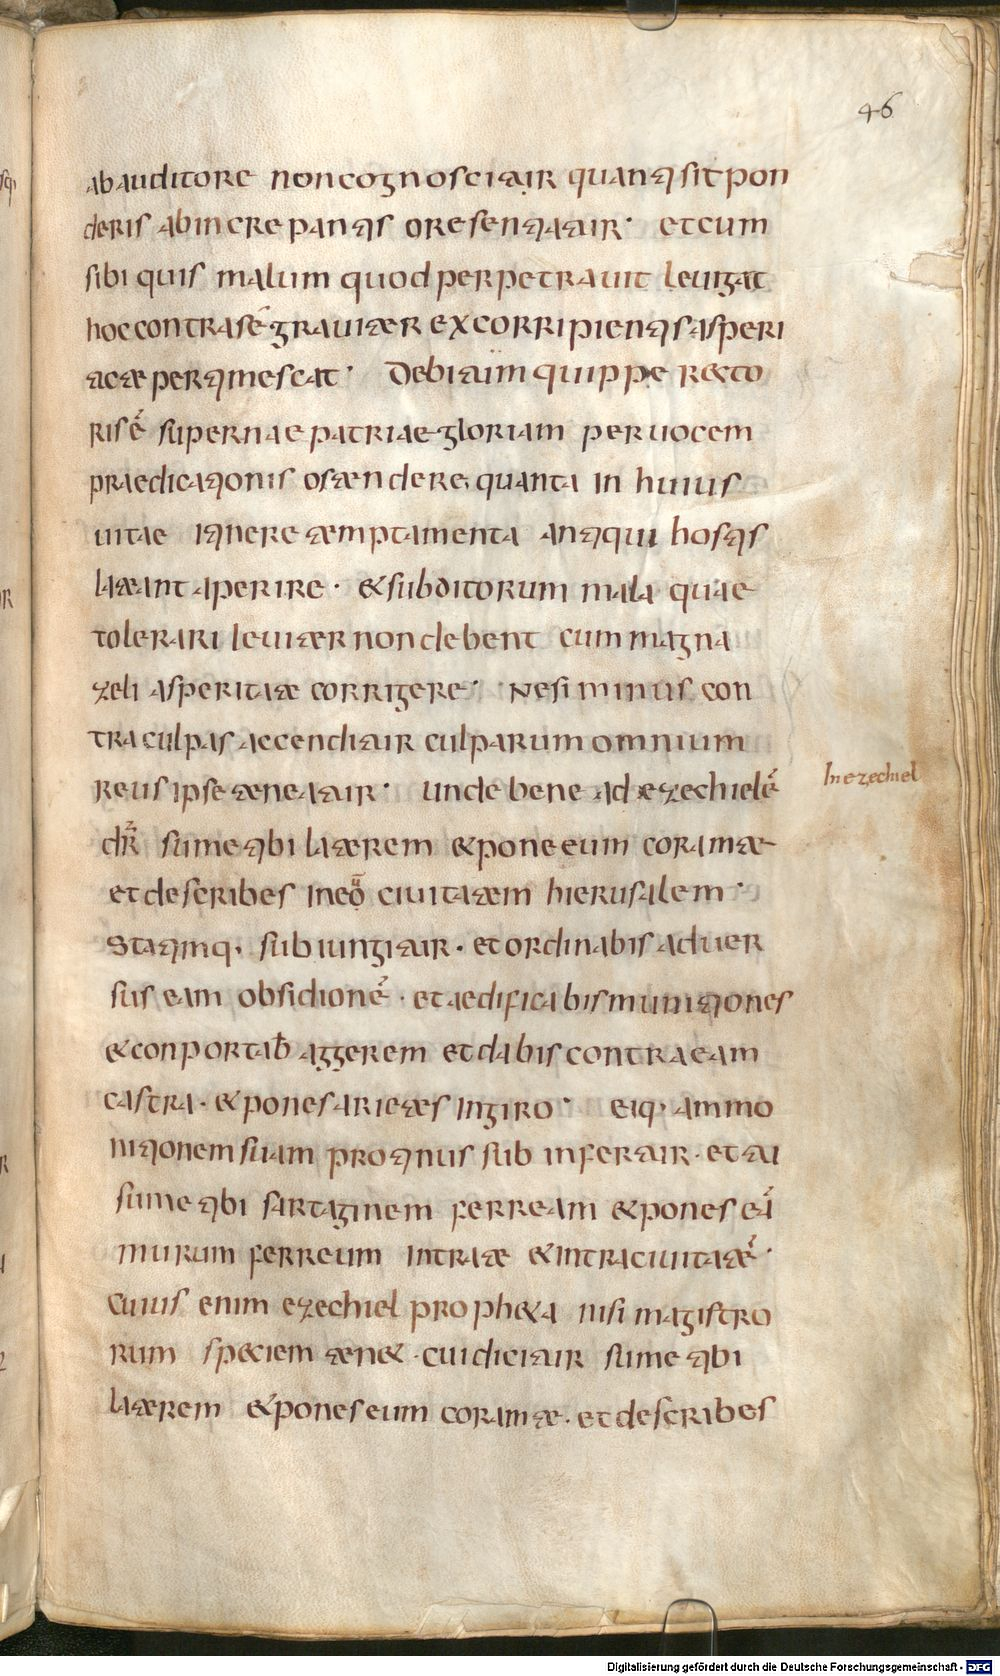 46
ab auditore non cognoscitur quanti sit pon
deris ab increpantis ore sentiatur · et cum
sibi quis malum quod perpetravit levigat
hoc contra sē graviter ex corripientis asperi
tate pertimescat · Debitum quippe recto
ris ē supernae patriae gloriam per vocem
praedicationis ostendere quanta in huius
vitae itinere temptamenta antiqui hostis
lateant aperire · et subditorum mala quae
tolerari leviter non debent cum magna
zeli asperitate corrigere · Ne si minus con
tra culpas accenditur culparum omnium
reus ipse teneatur · unde bene ad ezechielē
In ezechiel
dr̄ sume tibi laterem et pone eum coram te
et describes in eo civitatem hierusalem ·
Statimq· subiungitur · et ordinabis adver
sus eam obsidionē · et aedificabis munitiones
et conportab̄ aggerem et dabis contra eam
castra · et pones arietes in giro · eiq· ad mo
nitionem suam protinus sub infertur · et tu
sume tibi sartaginem ferream et pones eā
murum ferreum inter te et inter civitatē ·
Cuius enim ezechiel propheta nisi magistro
rum speciem tenet · cui dicitur sume tibi
laterem et pones eum coram te · et describes
Digitalisierung gefördert durch die Deutsche Forschungsgemeinschaft - DFG